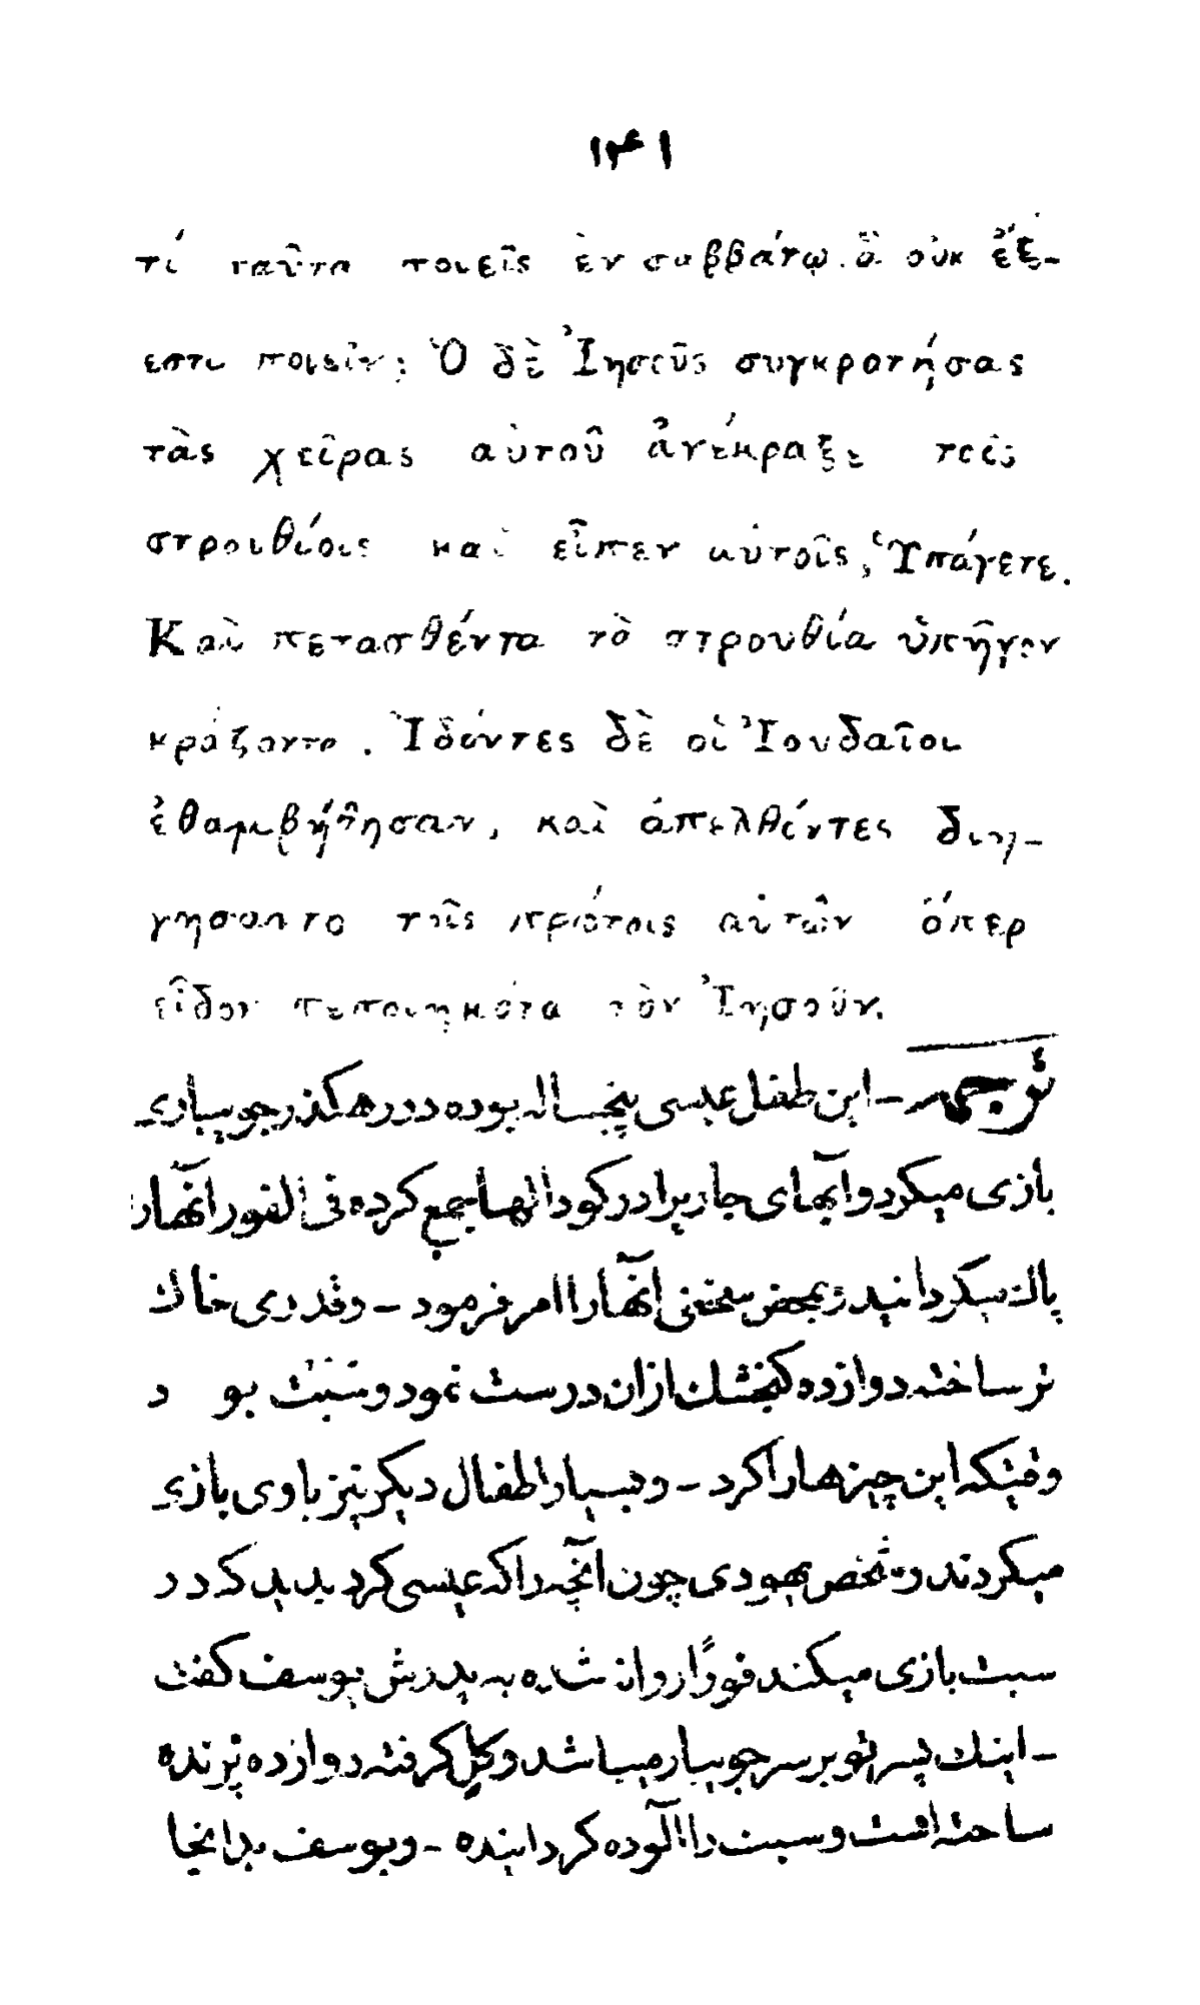 ۱۴۱
τί ταῦτα ποιεῖς ἐν σαββάτῳ. ἃ οὐκ ἔξ-
εστι ποιεῖν; Ὁ δὲ Ἰησοῦς συγκροτήσας
τὰς χεῖρας αὐτοῦ ἀνέκραξε τοῖς
στρουθίοις καὶ εἶπεν αὐτοῖς, Ὑπάγετε.
Καὶ πετασθέντα τὸ στρουθία ὑπῆγον
κράζοντα. Ἰδόντες δὲ οἱ Ἰουδαῖοι
ἐθαμβήθησαν, καὶ ἀπελθόντες διη-
γησαντο τοῖς πρώτοις αὐτῶν ὅπερ
εἶδον πεποιηκότα τὸν Ἰησοῦν.
ترجمه – این طفل عیسی پنجساله بوده در رهگذر جویباری
بازی میکرد و آبهای جاریرا در گودالها جمع کرده فی الفور آنها را
پاک میگردانید و بمحض سخنی آنها را امر فرمود – و قدری خاک
تر ساخته دوازده گنجشک از ان درست نمود و سبت بو د
وقتیکه این چیزها را کرد – و بسیار اطفال دیگر نیز با وی بازی
میکردند و شخص یهودی چون آنچه را که عیسی کرد بدید که در
سبت بازی میکند فوراً روانه شده به پدرش یوسف گفت
– اینک پسر تو بر سر جویبار میباشد و گل گرفته دوازده پرنده
ساخته است و سبت را آلوده گردانیده – و یوسف بدانجا